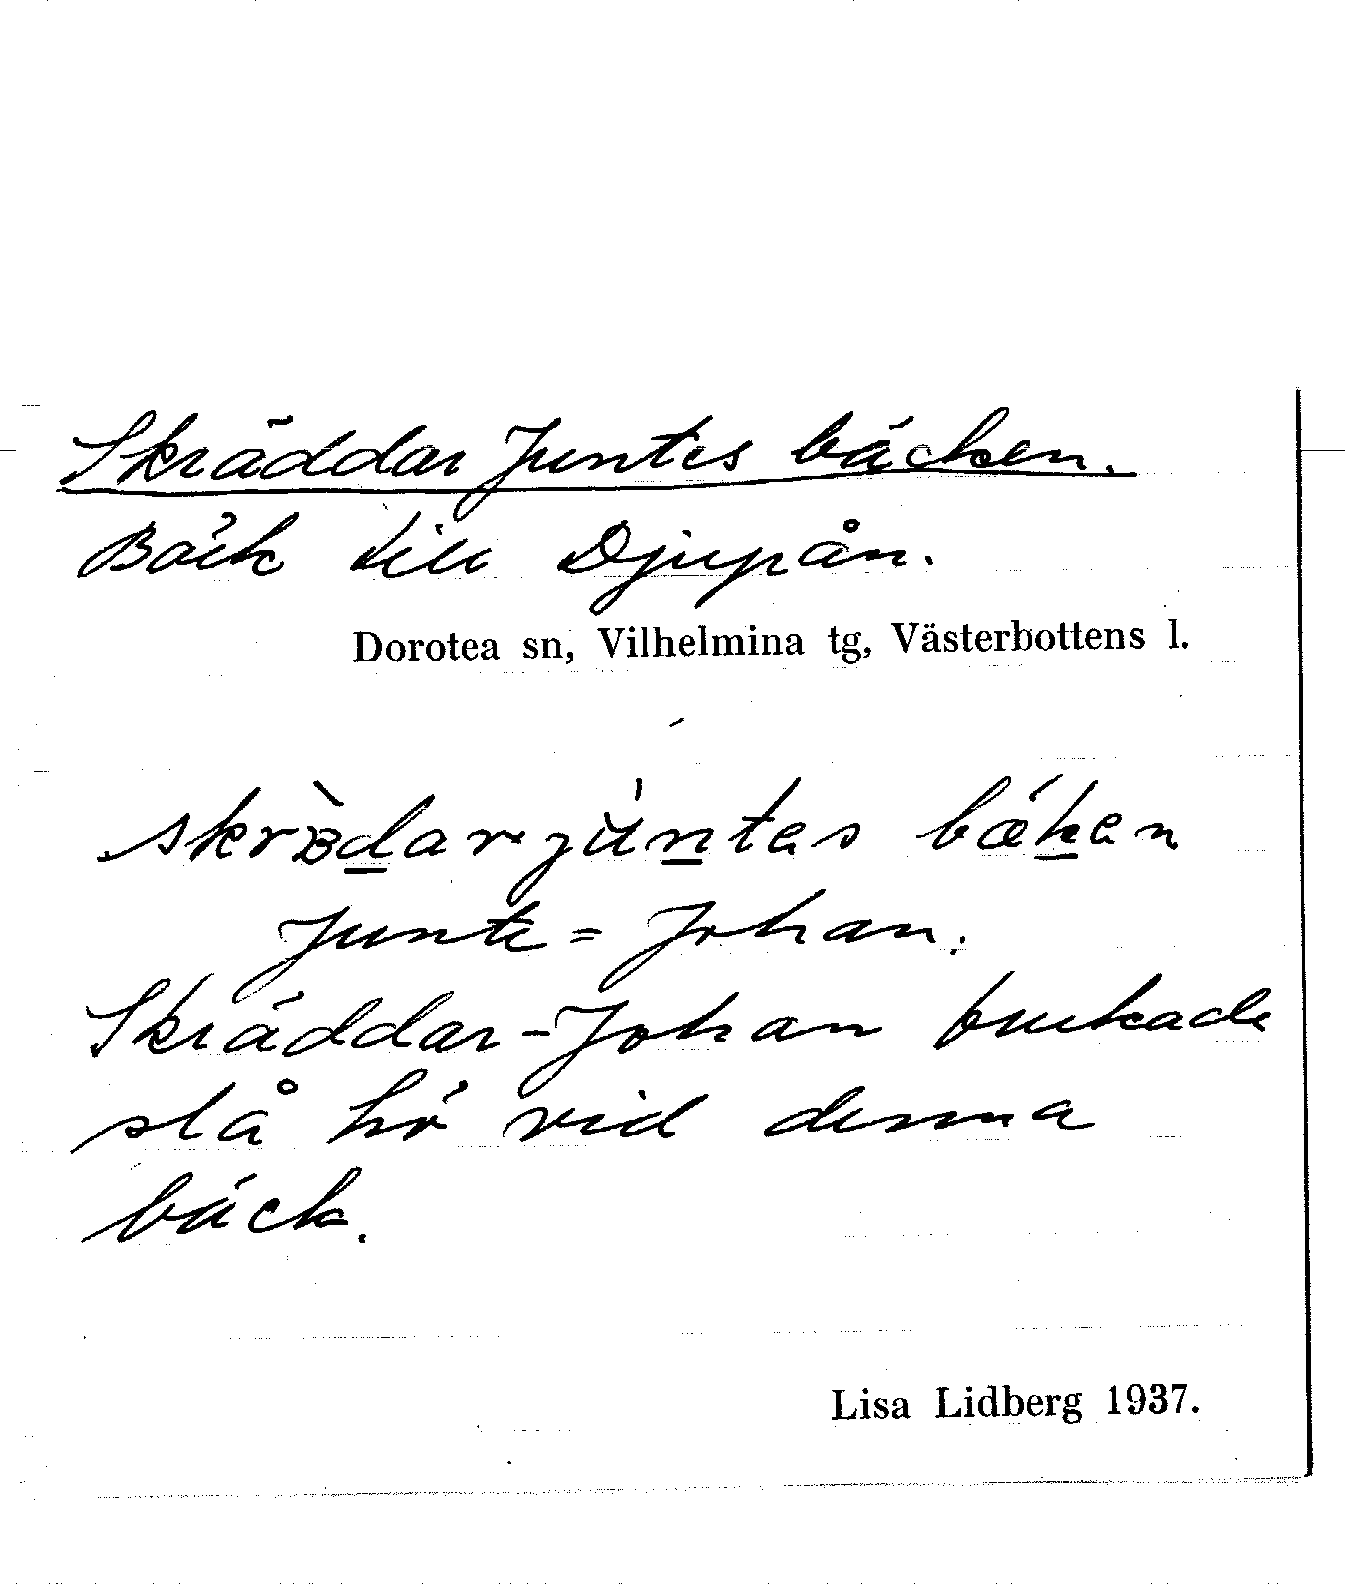 Skräddar Juntes bäcken.
Bäck till Djupån.
Dorotea sn, Vilhelmina tg, Västerbottens l.
bǽken
Junte = Johan.
Skräddar-Johan brukade
slå hö vid denna
bäck.
Lisa Lidberg 1937.